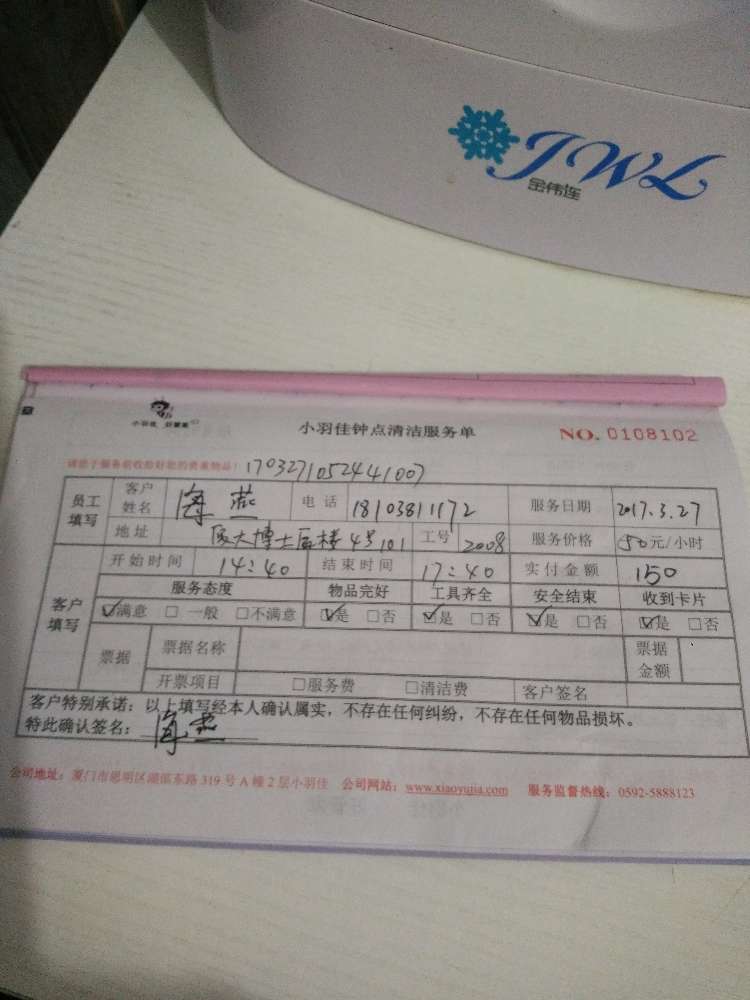 JWL
金伟连
小羽佳 好管家
小羽佳钟点清洁服务单
NO. 0108102
请您于服务前收拾好您的贵重物品! 170327105244​1007
员工填写 客户姓名 海燕 电话 18103811172 服务日期 2017.3.27
地址 厦大博士后楼4号101 工号 2008 服务价格 50元/小时
开始时间 14:40 结束时间 17:40 实付金额 150
客户填写 服务态度 物品完好 工具齐全 安全结束 收到卡片
☑满意 □一般 □不满意 ☑是 □否 ☑是 □否 ☑是 □否 ☑是 □否
票据 票据名称 票据金额
开票项目 □服务费 □清洁费 客户签名
客户特别承诺:以上填写经本人确认属实,不存在任何纠纷,不存在任何物品损坏。
特此确认签名: 海燕
公司地址:厦门市思明区湖滨东路319号A幢2层小羽佳 公司网站:www.xiaoyujia.com 服务监督热线:0592-5888123